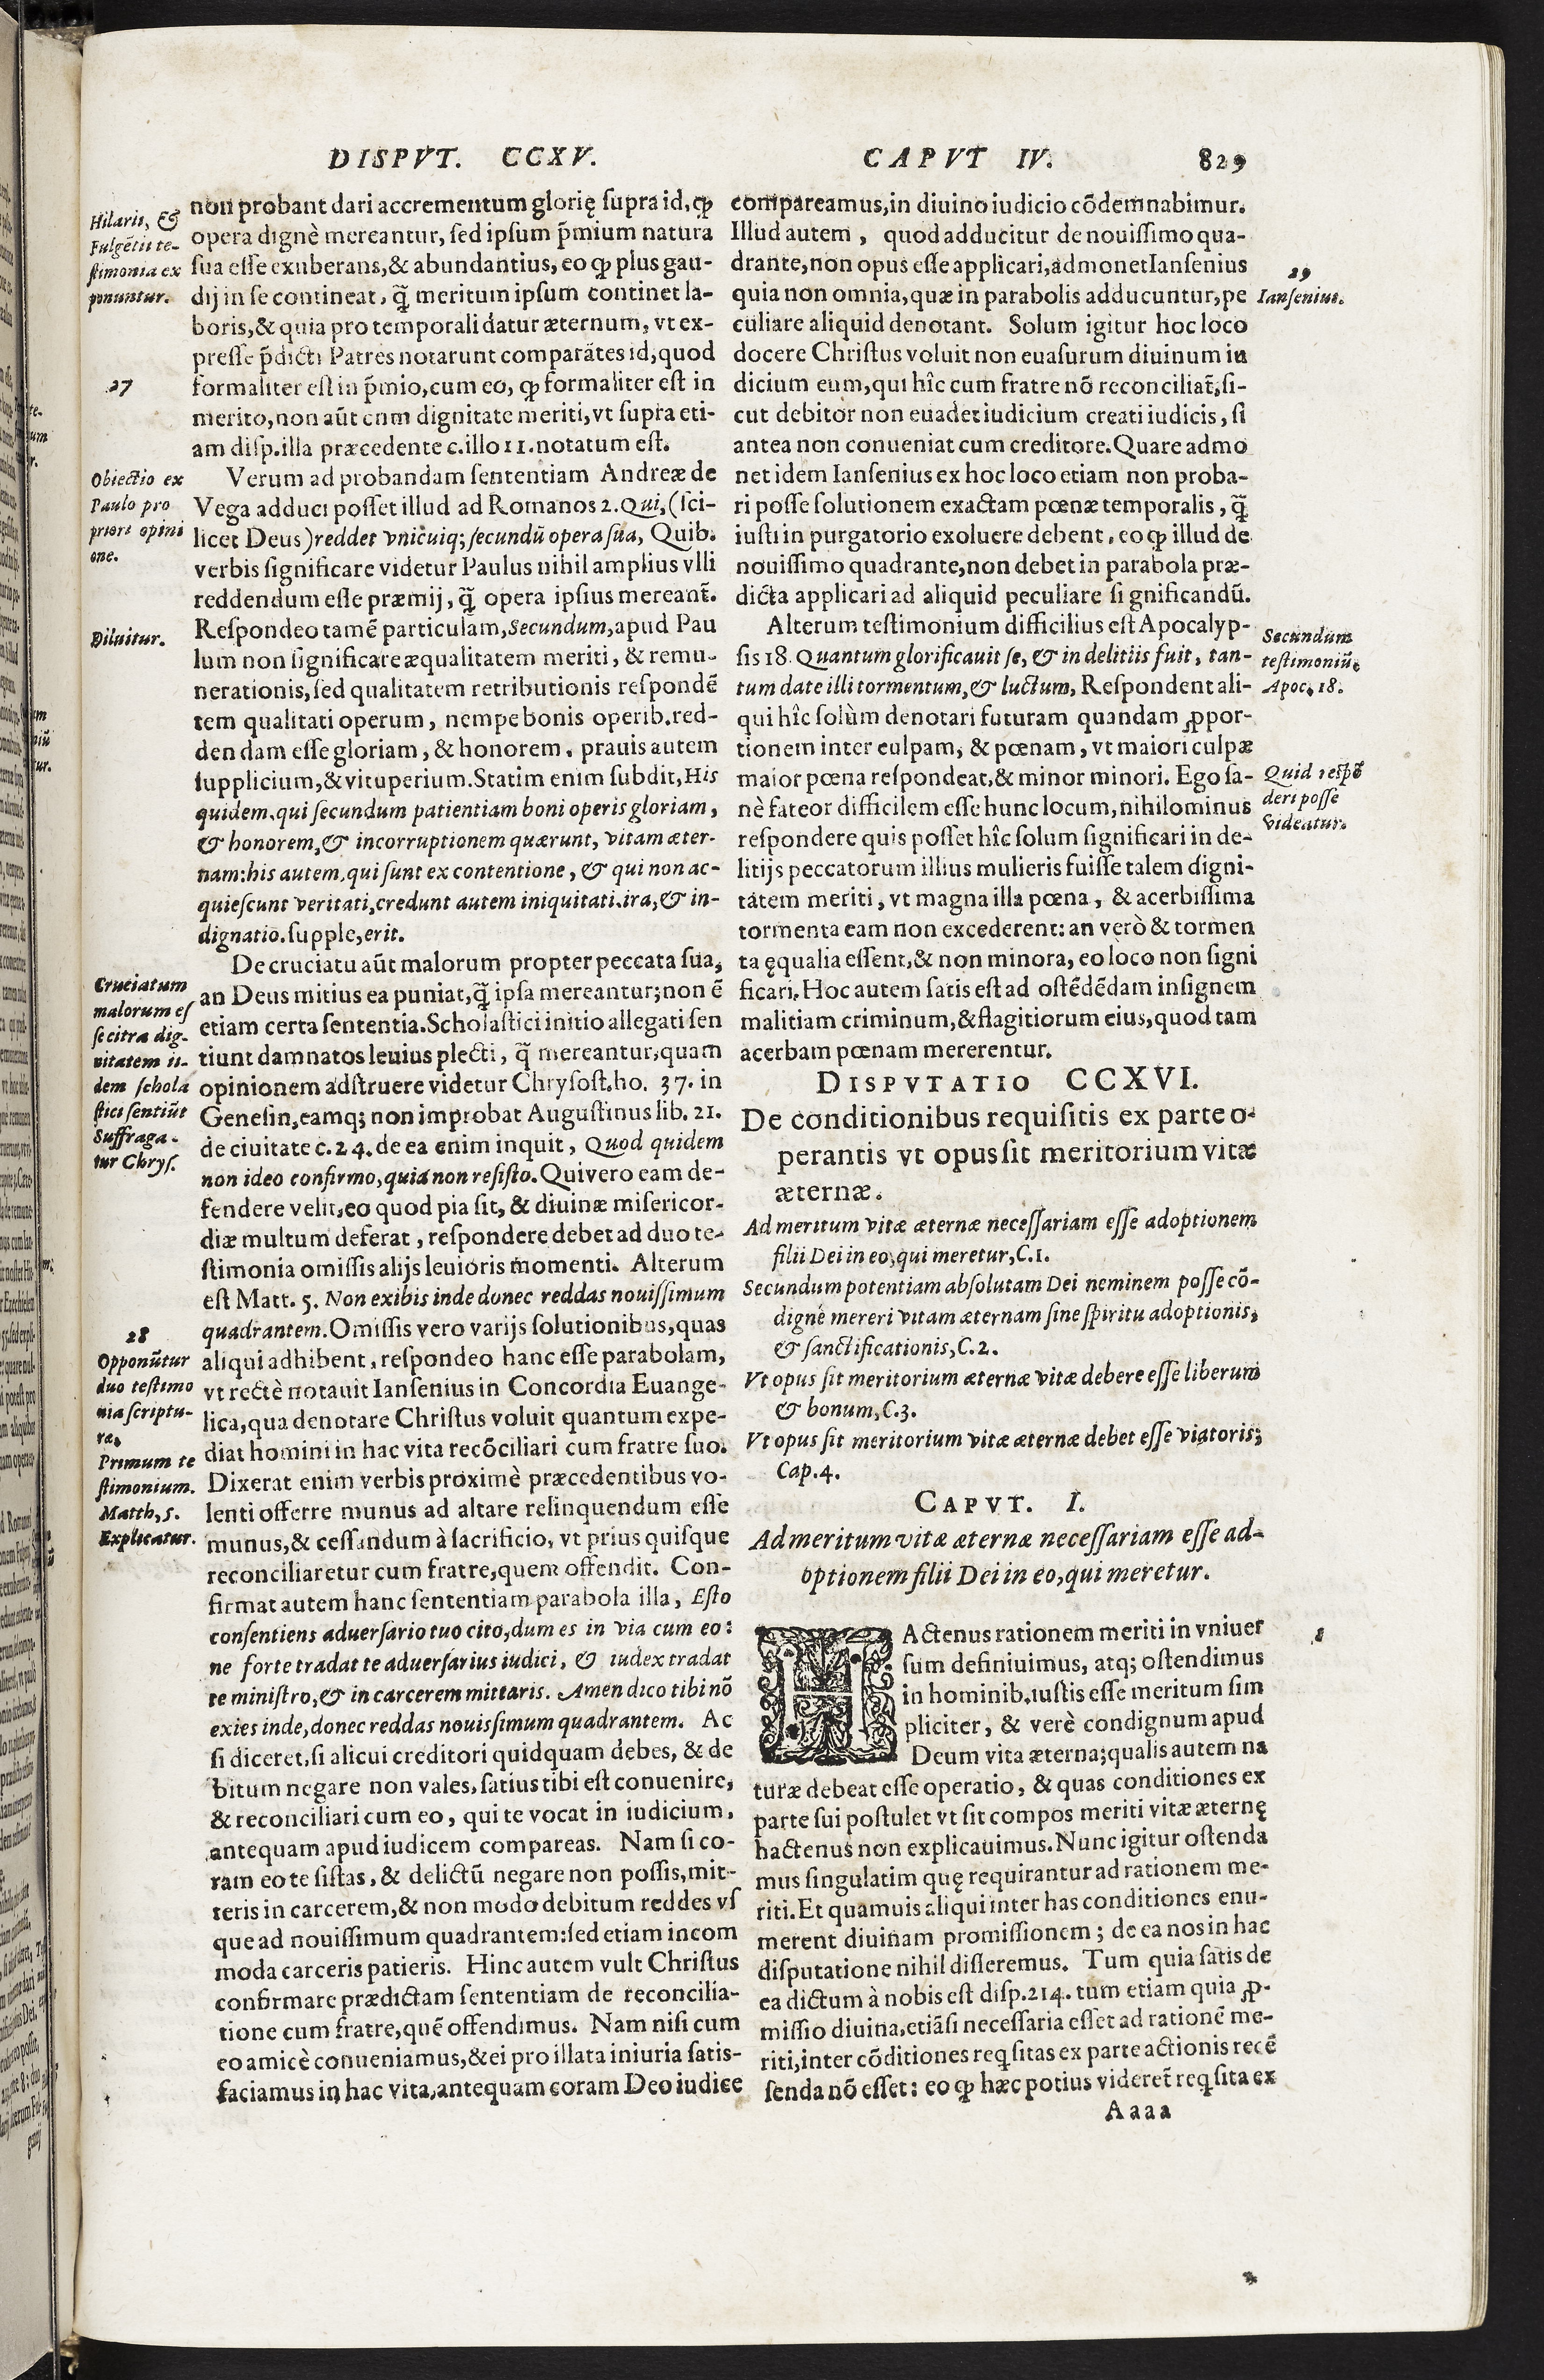 DISPVT. CCXV.
CAPVT IV. 829
Hilarii, &
Fulgẽtii te-
stimonia ex
ponuntur.
27
Obiectio ex
Paulo pro
priori opini
one.
Diluitur.
Cruciatum
malorum es
se citra dig-
nitatem ii-
dem schola
stici sentiũt
Suffraga-
tur Chrys.
28
Opponũtur
duo testimo
nia scriptu-
ræ.
Primum te
stimonium.
Matth. 5.
Explicatur.
non probant dari accrementum glorię supra id, ꝙ
opera dignè mereantur, sed ipsum p̃mium natura
sua esse exuberans, & abundantius, eo ꝙ plus gau-
dij in se contineat, q̃ meritum ipsum continet la-
boris, & quia pro temporali datur æternum, vt ex-
presse p̃dicti Patres notarunt comparãtes id, quod
formaliter est in p̃mio, cum eo, ꝙ formaliter est in
merito, non aũt cum dignitate meriti, vt supra eti-
am disp. illa præcedente c. illo 11. notatum est.
Verum ad probandam sententiam Andreæ de
Vega adduci posset illud ad Romanos 2. Qui, (sci-
licet Deus) reddet vnicuiq; secundũ opera sua, Quib.
verbis significare videtur Paulus nihil amplius vlli
reddendum esse præmij, q̃ opera ipsius mereant̃.
Respondeo tamẽ particulam, Secundum, apud Pau
lum non significare æqualitatem meriti, & remu-
nerationis, sed qualitatem retributionis respondẽ
tem qualitati operum, nempe bonis operib. red-
den dam esse gloriam, & honorem, prauis autem
supplicium, & vituperium. Statim enim subdit, His
quidem, qui secundum patientiam boni operis gloriam,
& honorem, & incorruptionem quærunt, vitam æter-
nam: his autem, qui sunt ex contentione, & qui non ac-
quiescunt veritati, credunt autem iniquitati, ira, & in-
dignatio. supple, erit.
De cruciatu aũt malorum propter peccata sua,
an Deus mitius ea puniat, q̃ ipsa mereantur; non ẽ
etiam certa sententia. Scholastici initio allegati sen
tiunt damnatos leuius plecti, q̃ mereantur, quam
opinionem adstruere videtur Chrysost. ho. 37. in
Genesin, eamq; non improbat Augustinus lib. 21.
de ciuitate c. 24. de ea enim inquit, Quod quidem
non ideo confirmo, quia non resisto. Qui vero eam de-
fendere velit, eo quod pia sit, & diuinæ misericor-
diæ multum deferat, respondere debet ad duo te-
stimonia omissis alijs leuioris momenti. Alterum
est Matt. 5. Non exibis inde donec reddas nouissimum
quadrantem. Omissis vero varijs solutionibus, quas
aliqui adhibent, respondeo hanc esse parabolam,
vt rectè notauit Iansenius in Concordia Euange-
lica, qua denotare Christus voluit quantum expe-
diat homini in hac vita recõciliari cum fratre suo.
Dixerat enim verbis proximè præcedentibus vo-
lenti offerre munus ad altare relinquendum esse
munus, & cessandum à sacrificio, vt prius quisque
reconciliaretur cum fratre, quem offendit. Con-
firmat autem hanc sententiam parabola illa, Esto
consentiens aduersario tuo cito, dum es in via cum eo:
ne forte tradat te aduersarius iudici, & iudex tradat
te ministro, & in carcerem mittaris. Amen dico tibi nõ
exies inde, donec reddas nouissimum quadrantem. Ac
si diceret, si alicui creditori quidquam debes, & de
bitum negare non vales, satius tibi est conuenire,
& reconciliari cum eo, qui te vocat in iudicium,
antequam apud iudicem compareas. Nam si co-
ram eo te sistas, & delictũ negare non possis, mit-
teris in carcerem, & non modo debitum reddes vs
que ad nouissimum quadrantem: sed etiam incom
moda carceris patieris. Hinc autem vult Christus
confirmare prædictam sententiam de reconcilia-
tione cum fratre, quẽ offendimus. Nam nisi cum
eo amicè conueniamus, & ei pro illata iniuria satis-
faciamus in hac vita, antequam coram Deo iudice
compareamus, in diuino iudicio cõdemnabimur.
Illud autem, quod adducitur de nouissimo qua-
drante, non opus esse applicari, admonet Iansenius
quia non omnia, quæ in parabolis adducuntur, pe
culiare aliquid denotant. Solum igitur hoc loco
docere Christus voluit non euasurum diuinum iu
dicium eum, qui hîc cum fratre nõ reconciliat̃, si-
cut debitor non euadet iudicium creati iudicis, si
antea non conueniat cum creditore. Quare admo
net idem Iansenius ex hoc loco etiam non proba-
ri posse solutionem exactam pœnæ temporalis, q̃
iusti in purgatorio exoluere debent, eo ꝙ illud de
nouissimo quadrante, non debet in parabola præ-
dicta applicari ad aliquid peculiare si gnificandũ.
Alterum testimonium difficilius est Apocalyp-
sis 18. Quantum glorificauit se, & in delitiis fuit, tan-
tum date illi tormentum, & luctum, Respondent ali-
qui hîc solùm denotari futuram quandam ꝓpor-
tionem inter culpam, & pœnam, vt maiori culpæ
maior pœna respondeat, & minor minori. Ego sa-
nè fateor difficilem esse hunc locum, nihilominus
respondere quis posset hîc solum significari in de-
litijs peccatorum illius mulieris fuisse talem digni-
tatem meriti, vt magna illa pœna, & acerbissima
tormenta eam non excederent: an verò & tormen
ta ęqualia essent, & non minora, eo loco non signi
ficari. Hoc autem satis est ad ostẽdẽdam insignem
malitiam criminum, & flagitiorum eius, quod tam
acerbam pœnam mererentur.
DISPVTATIO CCXVI.
De conditionibus requisitis ex parte o-
perantis vt opus sit meritorium vitæ
æternæ.
Ad meritum vitæ æternæ necessariam esse adoptionem
filii Dei in eo, qui meretur, C. 1.
Secundum potentiam absolutam Dei neminem posse cõ-
digné mereri vitam æternam sine spiritu adoptionis,
& sanctificationis, C. 2.
Vt opus sit meritorium æternæ vitæ debere esse liberum
& bonum, C. 3.
Vt opus sit meritorium vitæ æternæ debet esse viatoris;
Cap. 4.
CAPVT. I.
Ad meritum vitæ æternæ necessariam esse ad-
optionem filii Dei in eo, qui meretur.
HActenus rationem meriti in vniuer
sum definiuimus, atq; ostendimus
in hominib. iustis esse meritum sim
pliciter, & verè condignum apud
Deum vita æterna; qualis autem na
turæ debeat esse operatio, & quas conditiones ex
parte sui postulet vt sit compos meriti vitæ æternę
hactenus non explicauimus. Nunc igitur ostenda
mus singulatim quę requirantur ad rationem me-
riti. Et quamuis aliqui inter has conditiones enu-
merent diuinam promissionem; de ea nos in hac
disputatione nihil disseremus. Tum quia satis de
ea dictum à nobis est disp. 214. tum etiam quia ꝓ-
missio diuina, etiãsi necessaria esset ad rationẽ me-
riti, inter cõditiones reqsitas ex parte actionis recẽ
senda nõ esset: eo ꝙ hæc potius videret̃ reqsita ex
Aaaa
29
Iansenius.
Secundum
testimoniũ.
Apoc. 18.
Quid respõ
deri posse
videatur.
1